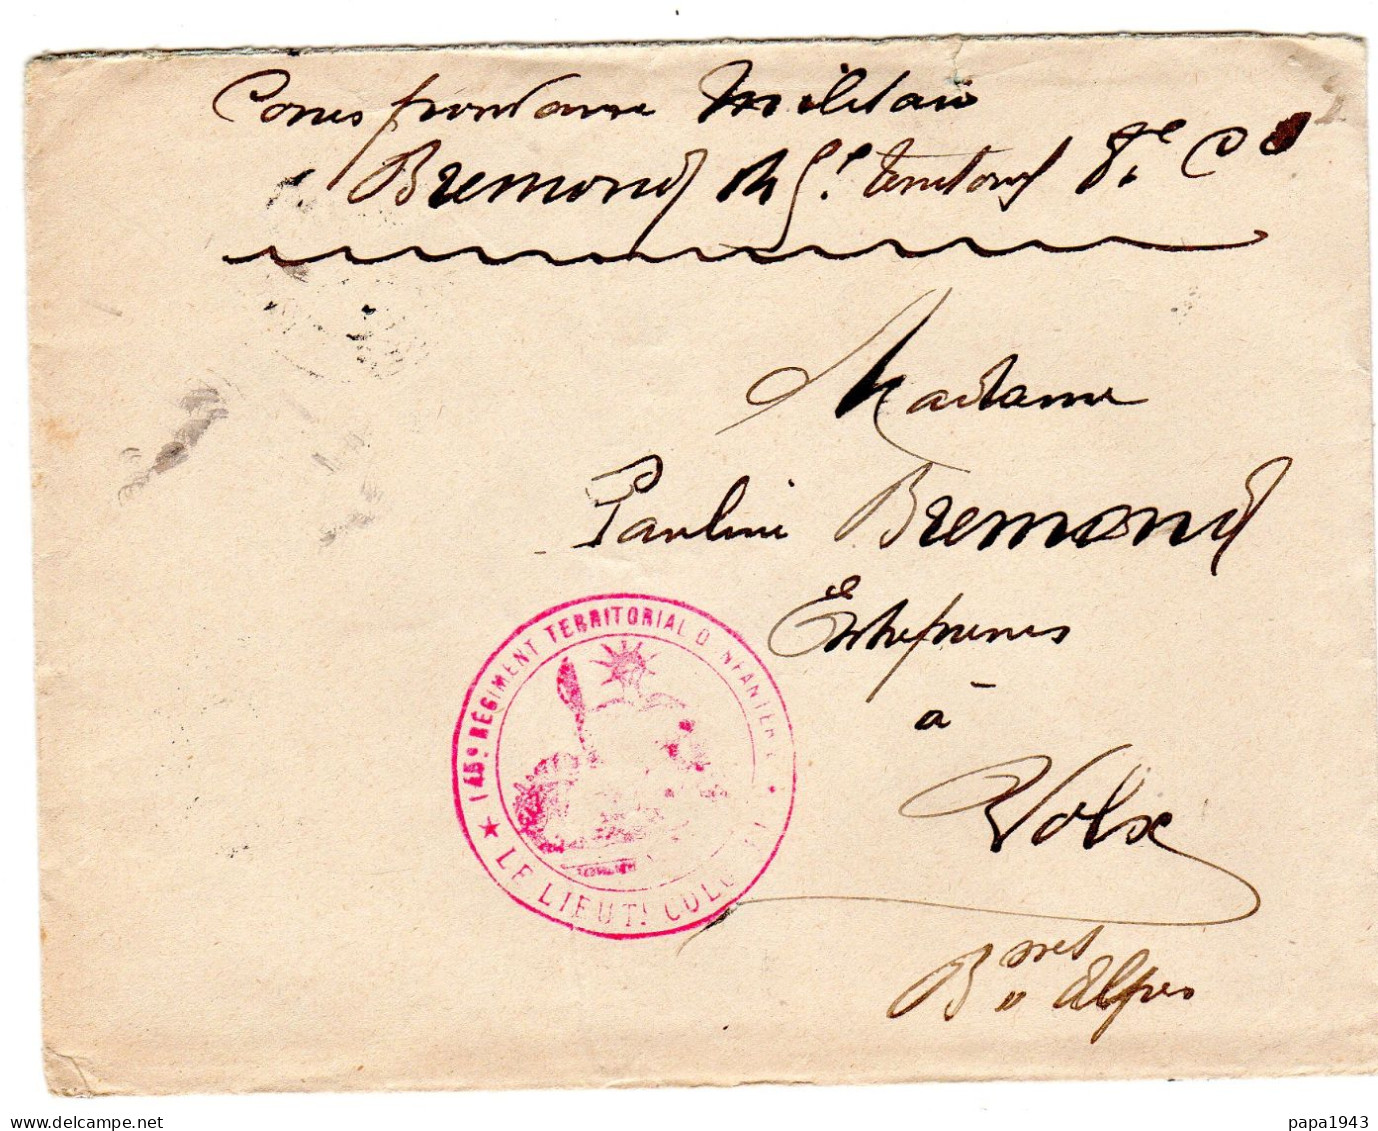 Correspondance Militaire
Bremond 145e territorial 8e Cie
Madame
Pauline Bremond
Entrepreneur
à
Volx
Bses Alpes
145e RÉGIMENT TERRITORIAL D'INFANTERIE
★ LE LIEUT! COLONEL
delcampe.net
papa1943